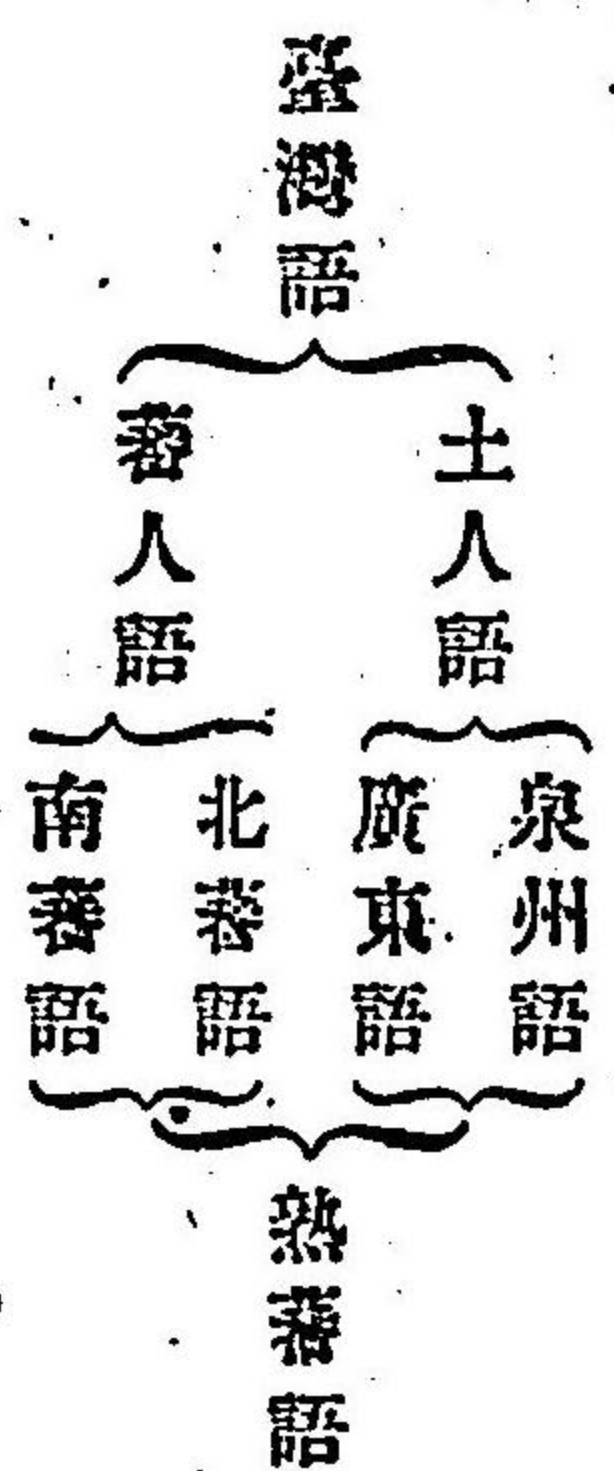 臺灣語
土人語
蕃人語
泉州語
廣東語
北蕃語
南蕃語
熟蕃語